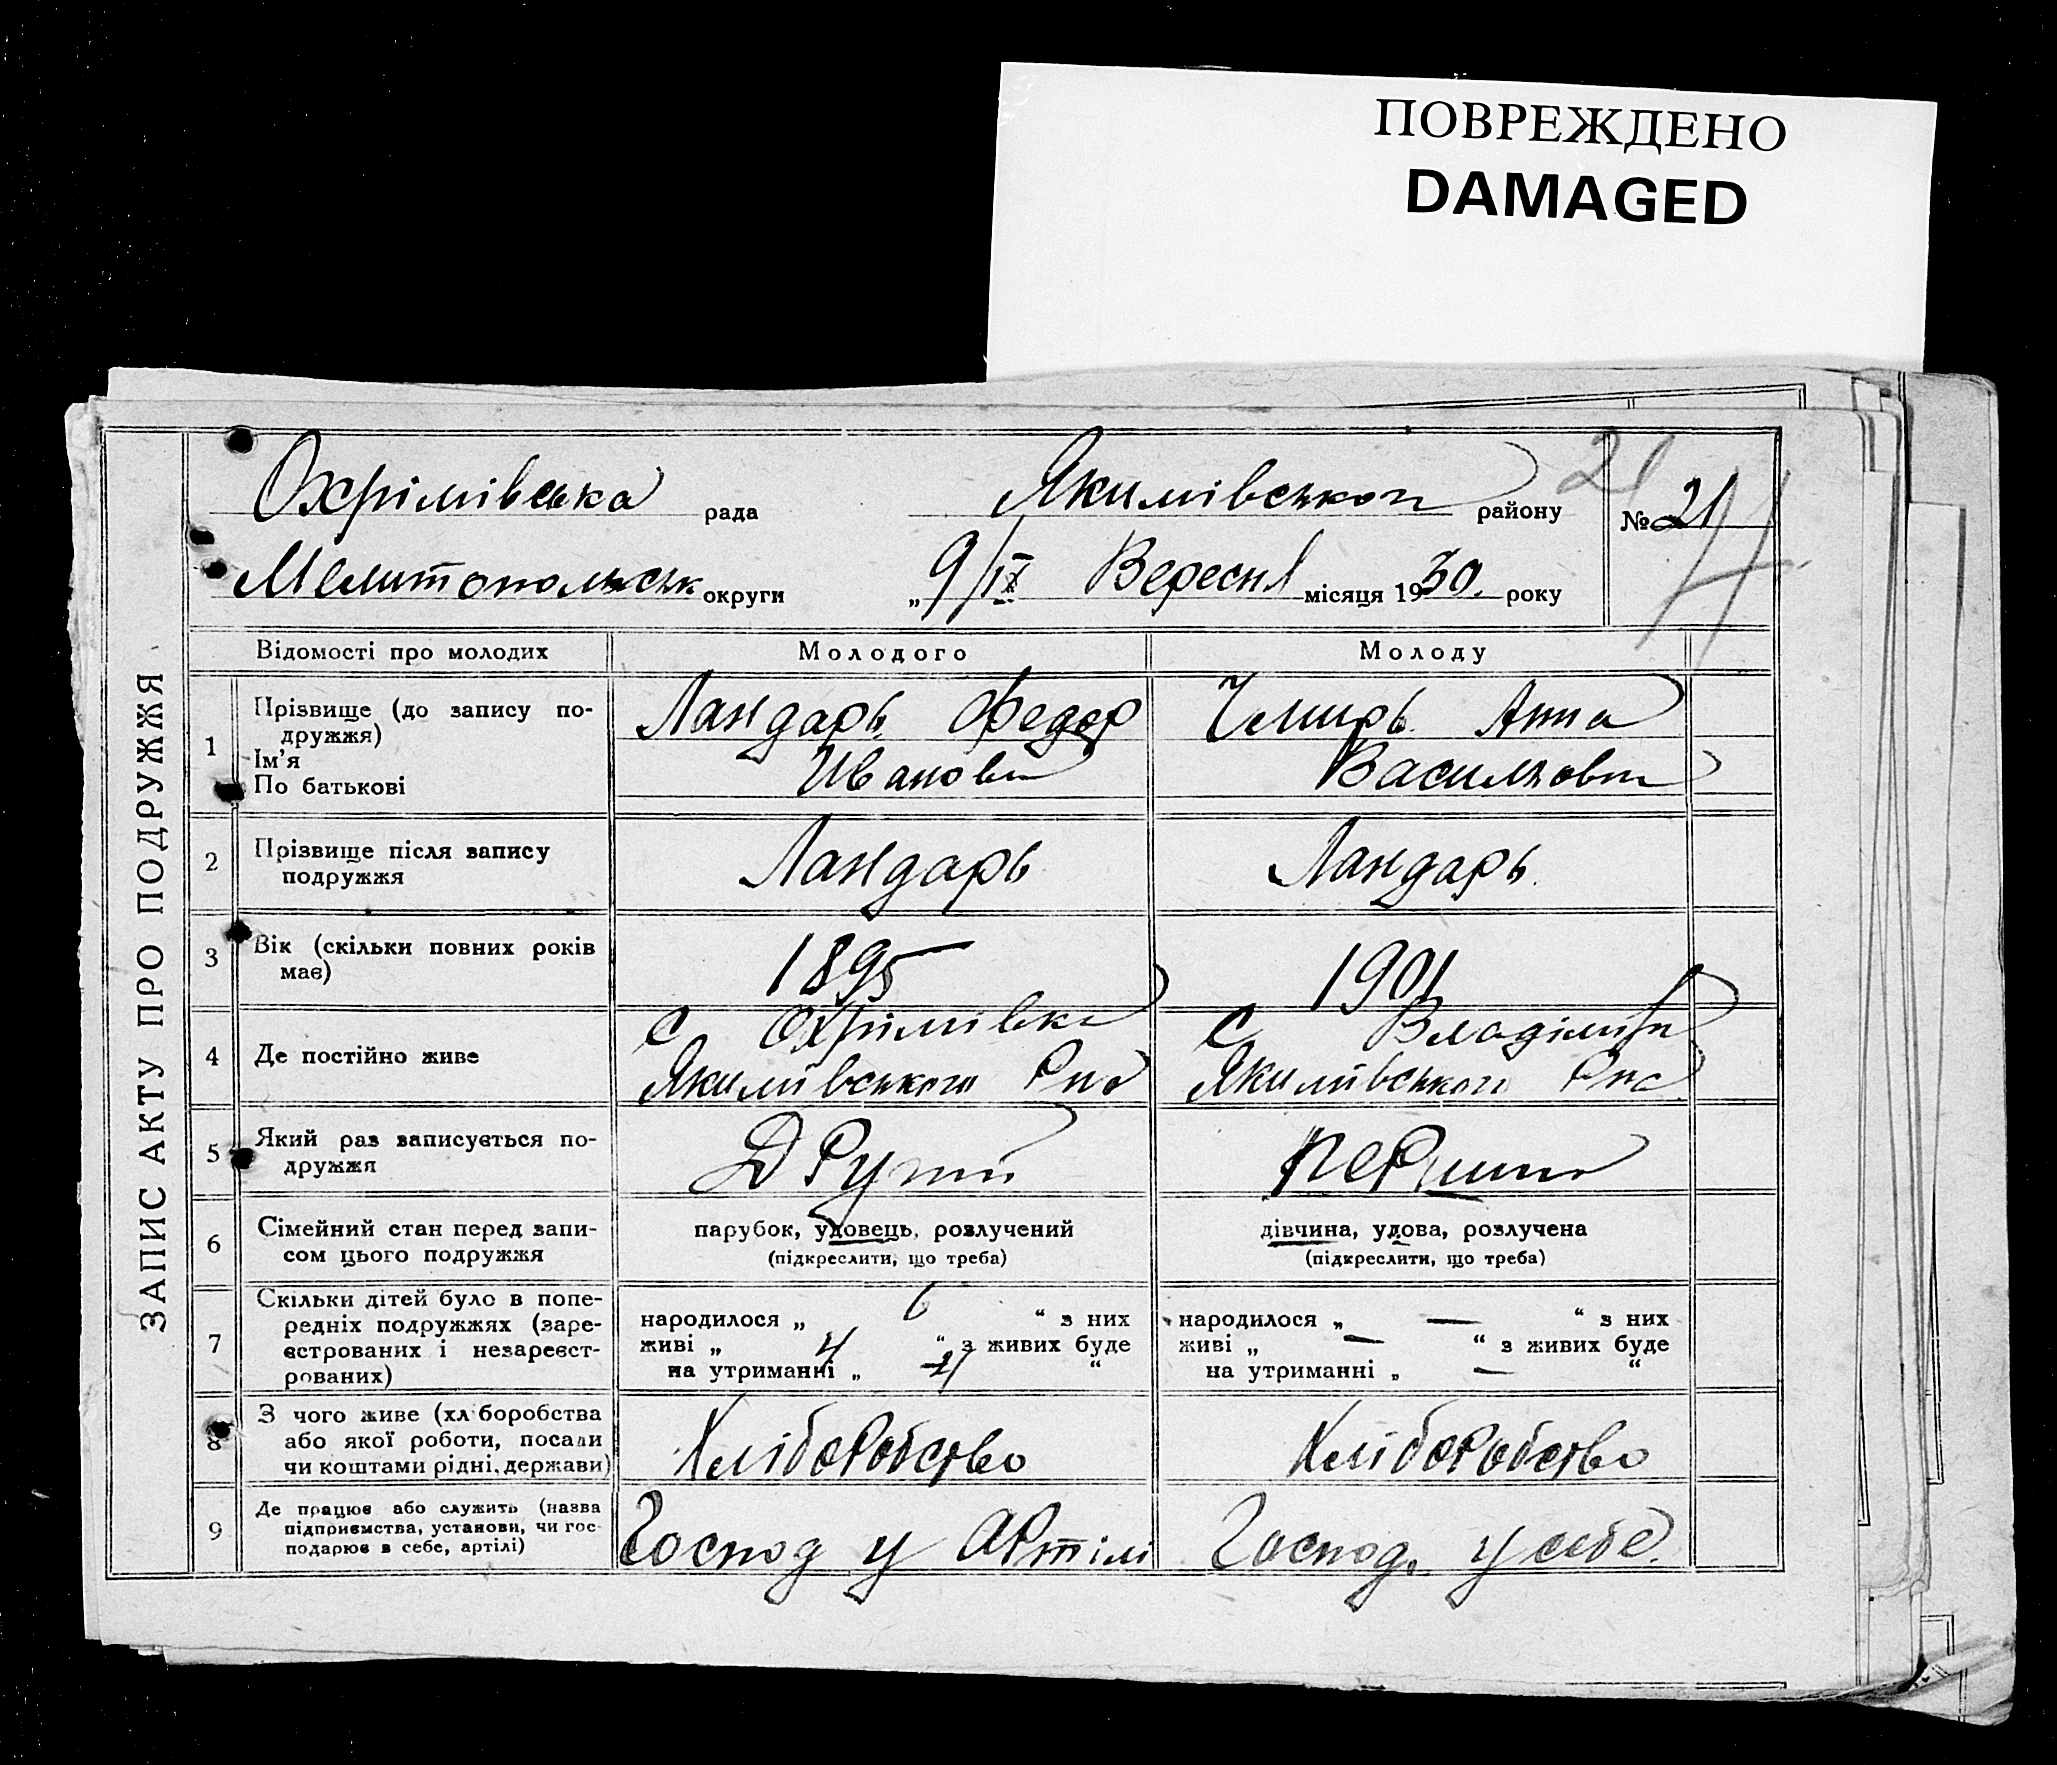 ПОВРЕЖДЕНО
DAMAGED
ЗАПИС АКТУ ПРО ПОДРУЖЖЯ
21
Охрімівська рада Якимівського району № 21
Мелитопольськ округи „ 9/IX Вересня місяця 1930. року
Відомості про молодих Молодого Молоду
1 Прізвище (до запису по-
дружжя)
Ім'я
По батькові
Ландарь Федор
Иванов
Чемирь Анна
Васильовн
2 Прізвище після запису
подружжя
Ландарь
Ландарь.
3 Вік (скільки повних років
має)
1895
1901
4 Де постійно живе
с Охрімівка
Якимівського Р-на
с
Якимівського
5 Який раз записується по-
дружжя
Другий
Перший
6 Сімейний стан перед запи-
сом цього подружжя
парубок, удовець, розлучений
(підкреслити, що треба)
дівчина, удова, розлучена
(підкреслити, що треба)
7 Скільки дітей було в попе-
редніх подружжях (заре-
єстрованих і незареєст-
рованих)
народилося „ 6 “ з них
живі „ 4 “ з живих буде
на утриманні „ 4 “
народилося „ — “ з них
живі „ — “ з живих буде
на утриманні „ — “
8 З чого живе (хліборобства
або якої роботи, посади
чи коштами рідні, держави)
Хліборобство
Хліборобство
9 Де працює або служить (назва
підприємства, установи, чи гос-
подарює в себе, артілі)
Господ у Артілі
Господ. у себе.